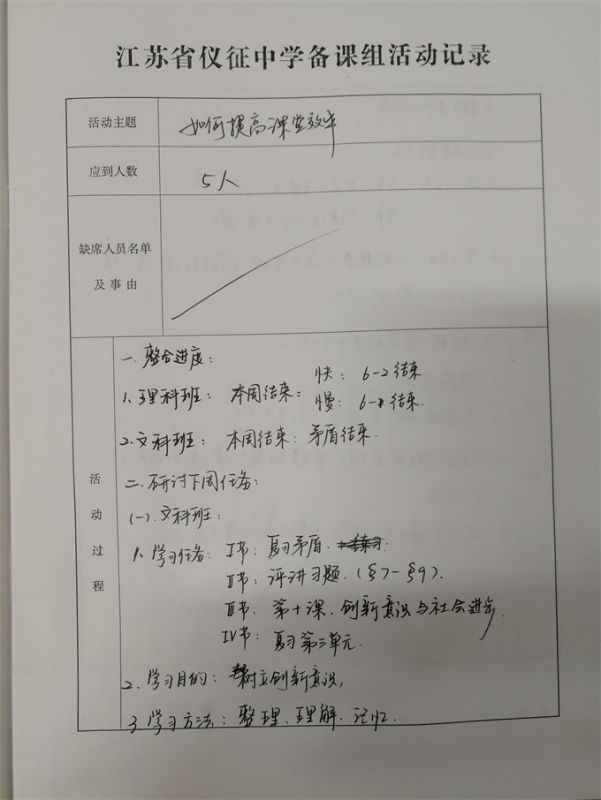 江苏省仪征中学备课组活动记录
活动主题 如何提高课堂效率
应到人数 5人
缺席人员名单
及事由
活动过程
一. 整合进度:
1. 理科班: 本周结束: 快: 6-2结束
慢: 6-1结束.
2. 文科班: 本周结束: 矛盾结束.
二. 研讨下周任务:
(一). 文科班:
1. 学习任务: I节: 复习矛盾.
II节: 评讲习题. (§7-§9).
III节: 第十课. 创新意识与社会进步.
IV节: 复习第三单元.
2. 学习目的: 树立创新意识,
3. 学习方法: 整理、理解、记忆.